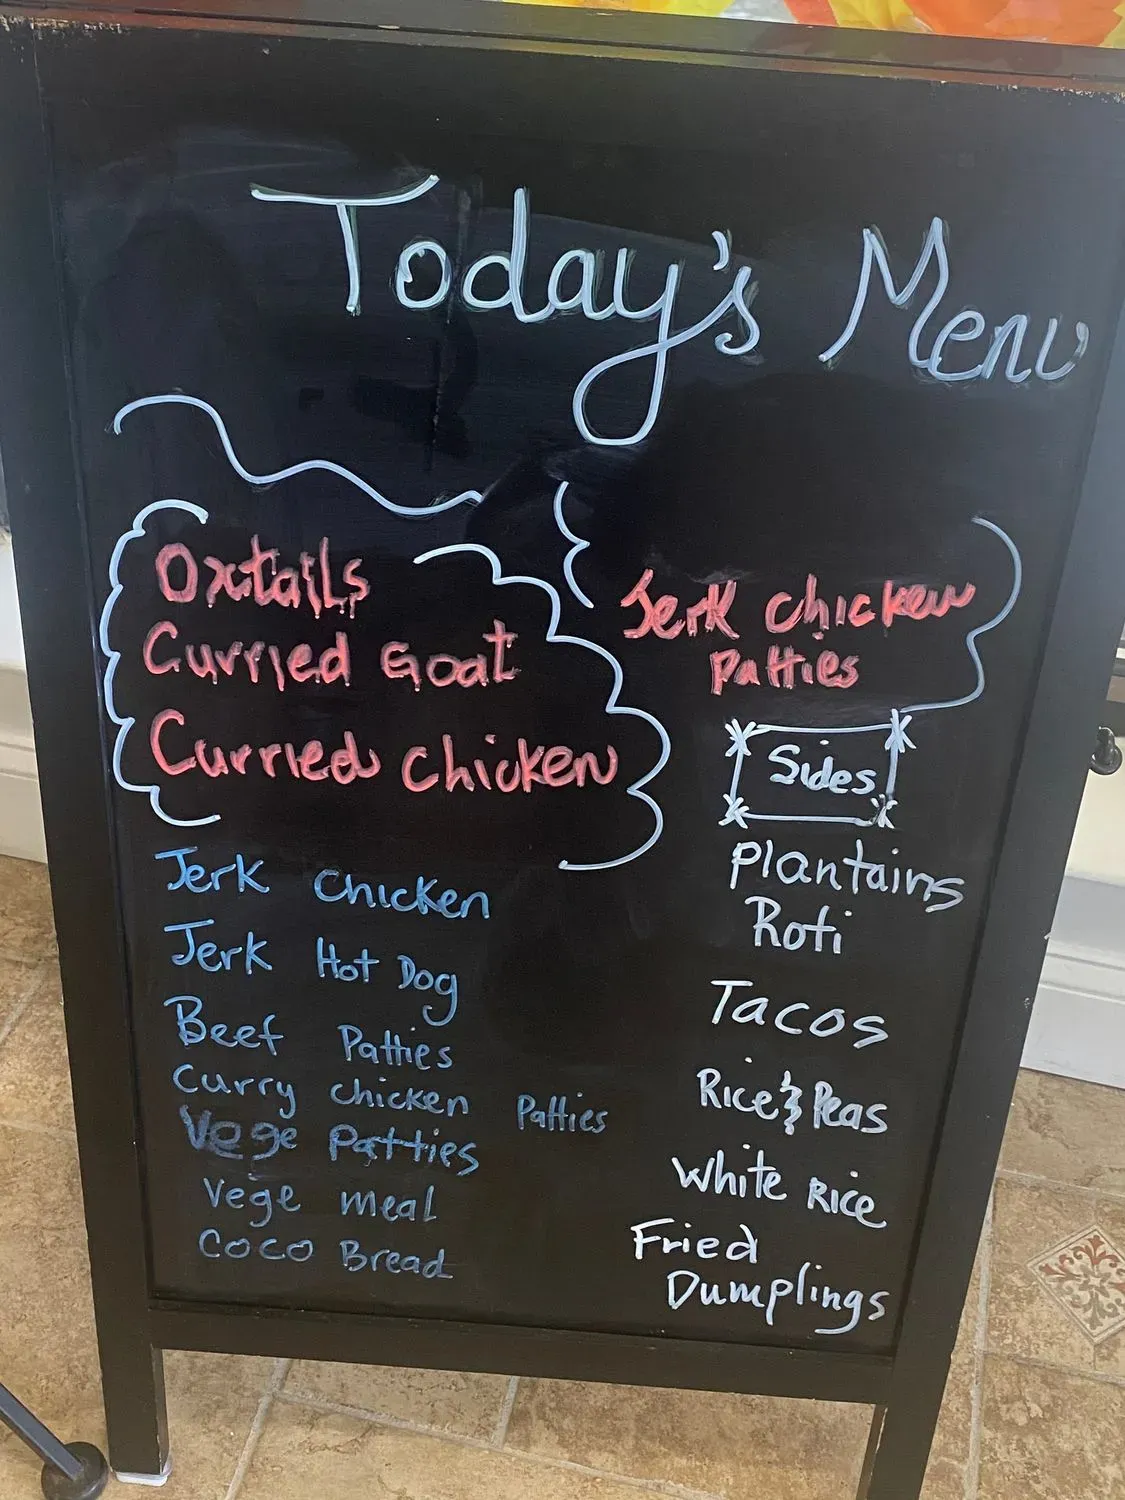 Today's Menu
Oxtails
Curried Goat
Curried Chicken
Jerk Chicken
Patties
Jerk Chicken
Jerk Hot Dog
Beef Patties
Curry Chicken Patties
Vege Patties
Vege meal
Coco Bread
Sides
Plantains
Roti
Tacos
Rice & Peas
White Rice
Fried
Dumplings